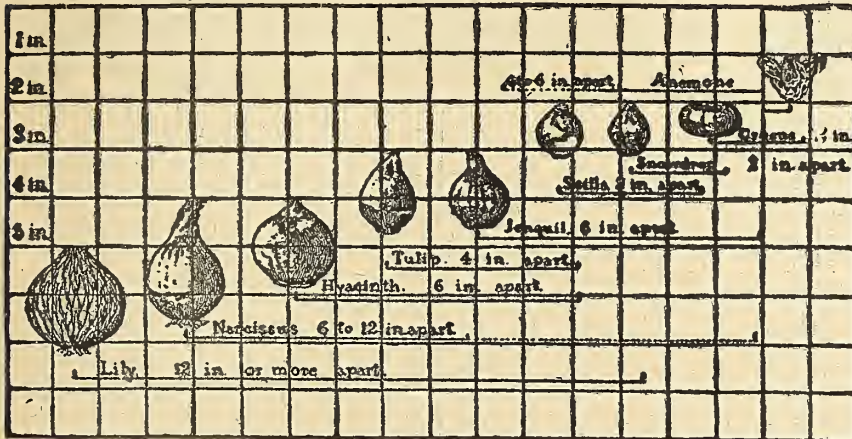 1 in.
2 in.
4 to 6 in. apart Anemone
3 in.
Crocus. in.
Snowdrop 2 in. apart
4 in.
Scilla 3 in. apart
5 in.
Jonquil. 6 in. apart
Tulip. 4 in. apart
Hyacinth. 6 in. apart
Narcissus 6 to 12 in. apart
Lily. 12 in. or more apart.